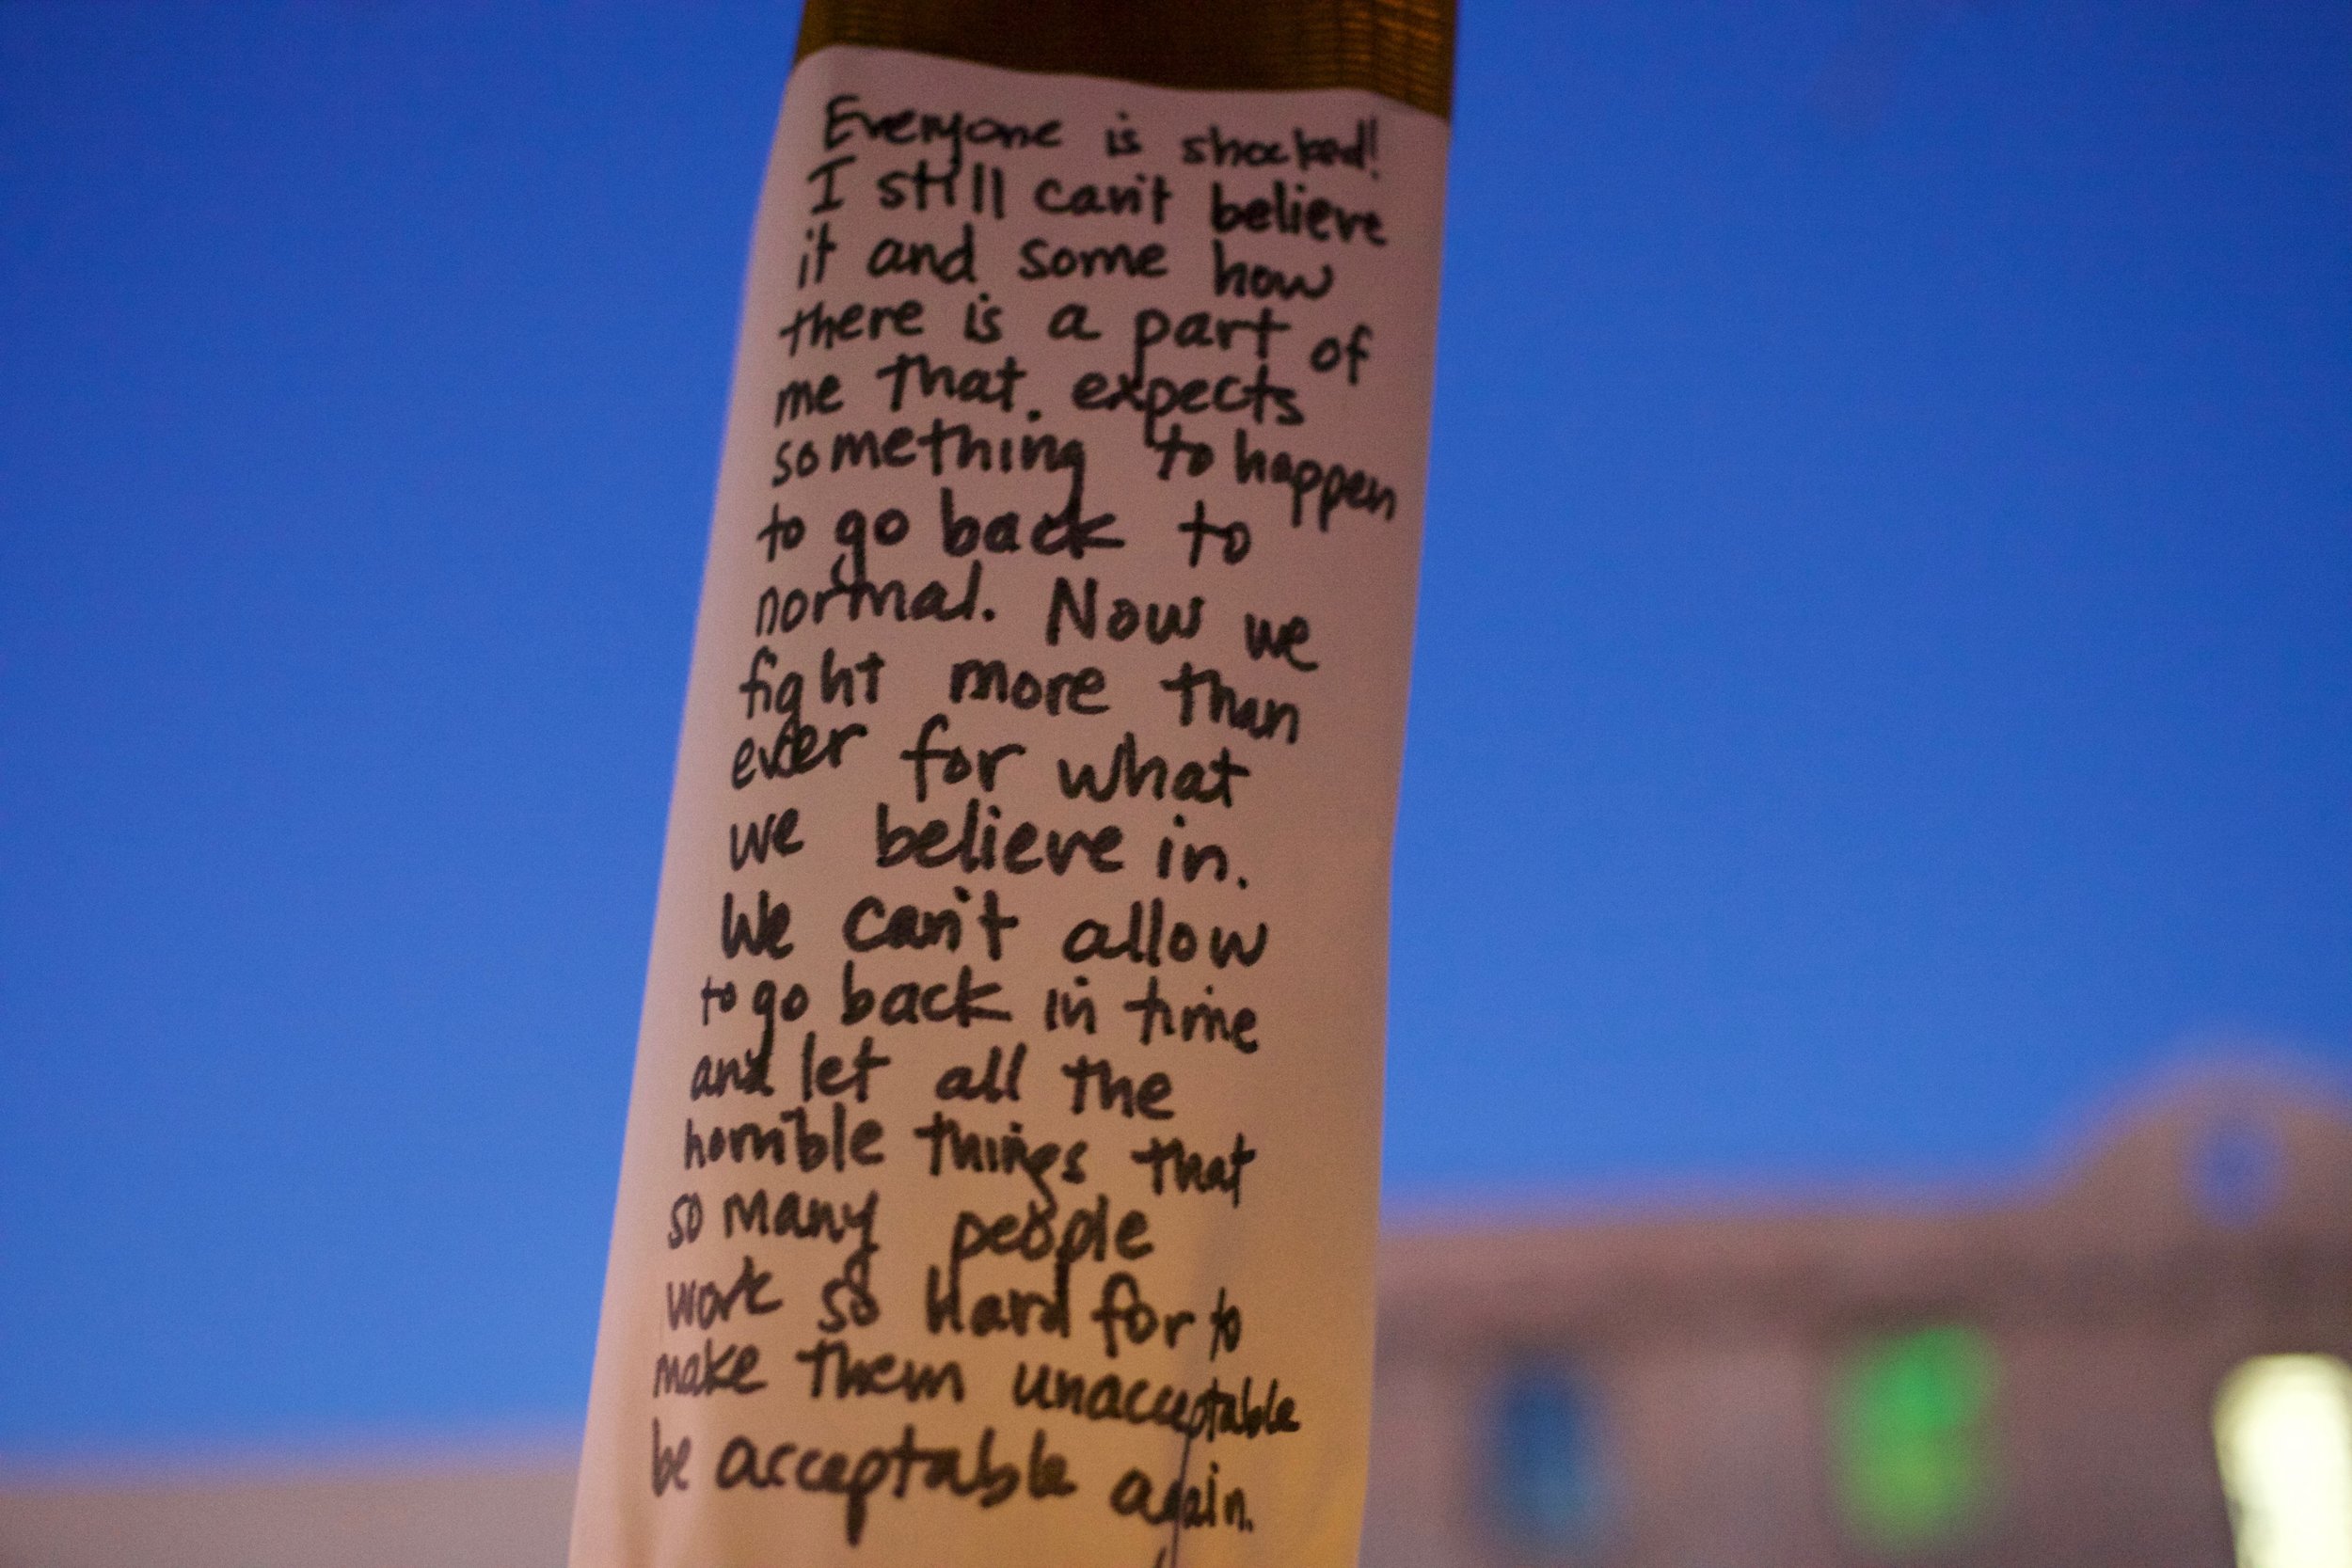 Everyone is shocked!
I still can't believe
it and some how
there is a part of
me that. expects
something to happen
to go back to
normal. Now we
fight more than
ever for what
we believe in.
We can't allow
to go back in time
and let all the
horrible things that
so many people
work so Hard for to
make them unacceptable
be acceptable again.